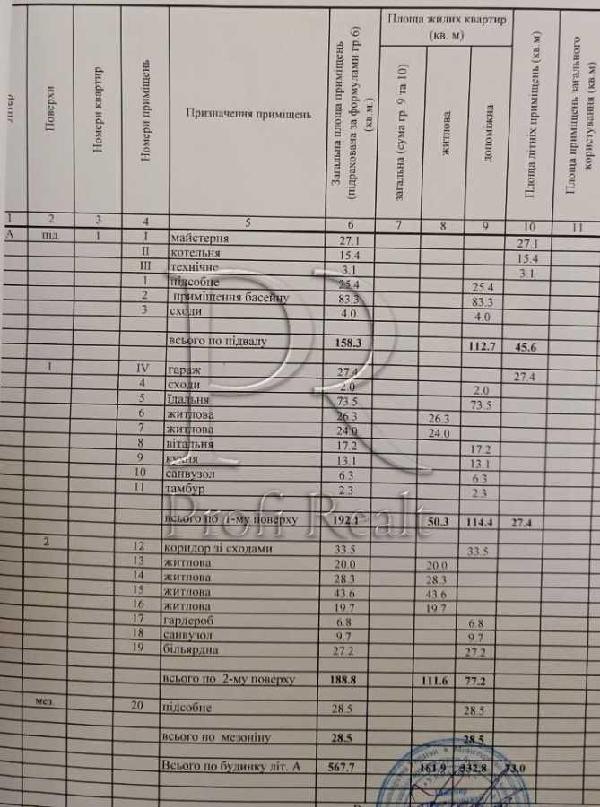 Площа жилих квартир (кв. м)
Поверхи
Номери квартир
Номери приміщень
Призначення приміщень
Загальна площа приміщень (підрахована за формулами гр.6) (кв.м.)
загальна (сума гр. 9 та 10)
житлова
допоміжна
Площа літніх приміщень (кв.м)
Площа приміщень загального користування (кв.м)
1 2 3 4 5 6 7 8 9 10 11
А під. 1 I майстерня 27.1 27.1
II котельня 15.4 15.4
III технічне 3.1 3.1
1 підсобне 25.4 25.4
2 приміщення басейну 83.3 83.3
3 сходи 4.0 4.0
всього по підвалу 158.3 112.7 45.6
1 IV гараж 27.4 27.4
4 сходи 2.0 2.0
5 їдальня 73.5 73.5
6 житлова 26.3 26.3
7 житлова 24.0 24.0
8 вітальня 17.2 17.2
9 кухня 13.1 13.1
10 санвузол 6.3 6.3
11 тамбур 2.3 2.3
всього по 1-му поверху 192.1 50.3 114.4 27.4
Profi Realt
2 12 коридор зі сходами 33.5 33.5
13 житлова 20.0 20.0
14 житлова 28.3 28.3
15 житлова 43.6 43.6
16 житлова 19.7 19.7
17 гардероб 6.8 6.8
18 санвузол 9.7 9.7
19 більярдна 27.2 27.2
всього по 2-му поверху 188.8 111.6 77.2
мез. 20 підсобне 28.5 28.5
всього по мезоніну 28.5 28.5
Всього по будинку літ. А 567.7 161.9 332.8 73.0